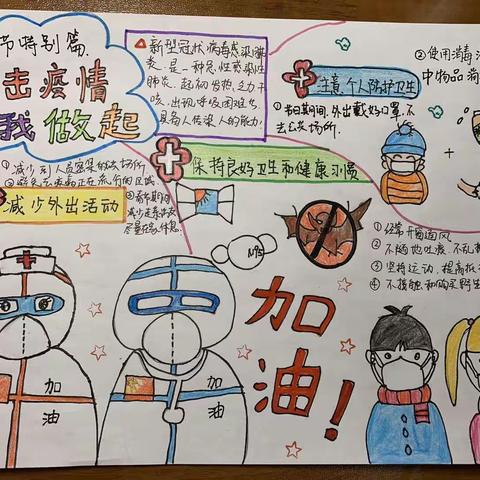 节特别篇
击疫情
我做起
新型冠状病毒感染肺
炎，是一种急性感染性
肺炎，起初发热，乏力干
咳，出现呼吸困难
具备人传染人的能力。
注意个人防护卫生
①节日期间，外出戴好口罩，不
去公共场所。
②使用消毒
中物品消
①减少到人员密集的公共场所
减少外出活动
减少走亲访友
尽量在家休息。
保持良好卫生和健康习惯
N95
①经常开窗通风
②不随地吐痰，不乱
③坚持运动，提高抵
④不接触和购买野生
加油！
加油
加油